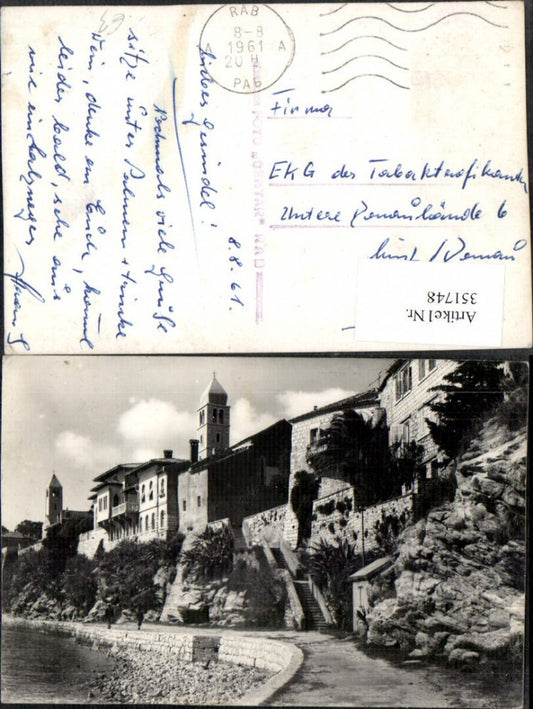 RAB
8-8
1961
A A
20 H
РАБ
8.8.61.
Lieber Gründel!
Nochmals viele Grüße
sitze unter Palmen + trinke
Wein, denke an Euch, kommt
leider bald, sehe aus
wie ein
Firma
EKG der Tabaktrafikanten
Untere Donaulände 6
Linz / Donau
Artikel Nr.
351748